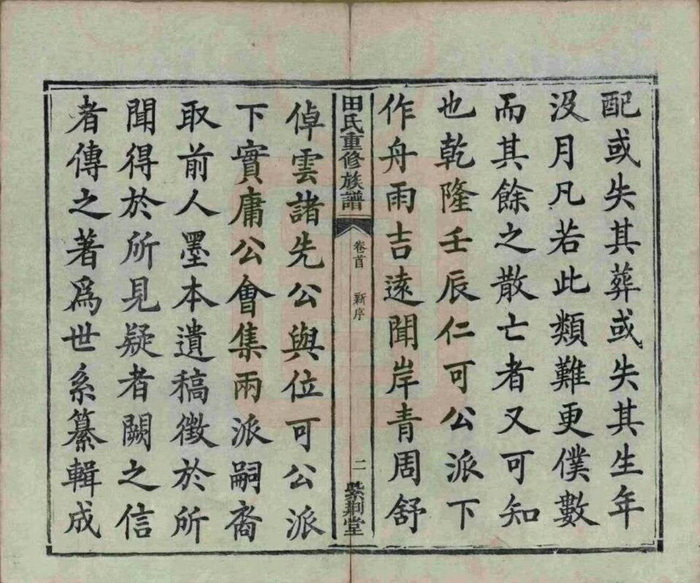 配或失其葬或失其生年
沒月凡若此類難更僕數
而其餘之散亡者又可知
也乾隆壬辰仁可公派下
作舟雨吉遠聞岸青周舒
田氏重修族譜
卷首 新序
二
紫荆堂
倬雲諸先公與位可公派
下實庸公會集兩派嗣裔
取前人墨本遺稿徵於所
聞得於所見疑者闕之信
者傳之著爲世系纂輯成